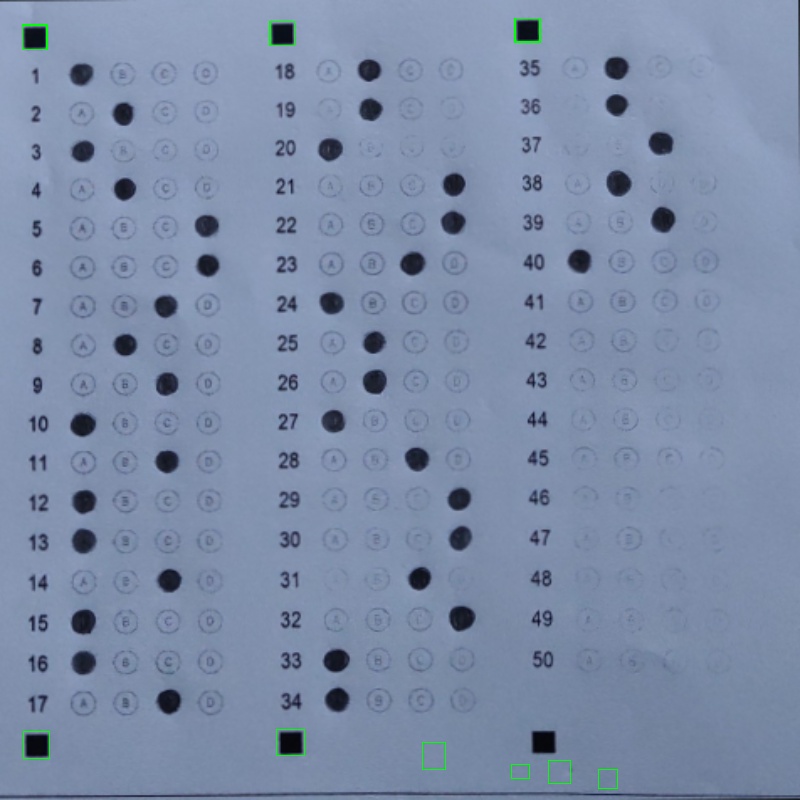 1 B C D
2 A C D
3 B C D
4 A C D
5 A B C
6 A B C
7 A B D
8 A C D
9 A B D
10 B C D
11 A B D
12 B C D
13 B C D
14 A B D
15 B C D
16 B C D
17 A B D
18 A C D
19 C
20
21 A B C
22 A B C
23 A B D
24 B C D
25 A C D
26 A C D
27 B C D
28 A B D
29 A B C
30 A B C
31 B
32 A B C
33 B C D
34 B C D
35 A C
36
37 B
38 A D
39 A B D
40 B C D
41 A B C D
42 A B C D
43 A B C D
44 A B
45 A B C
46 A B
47 A B
48
49 A B
50 A B